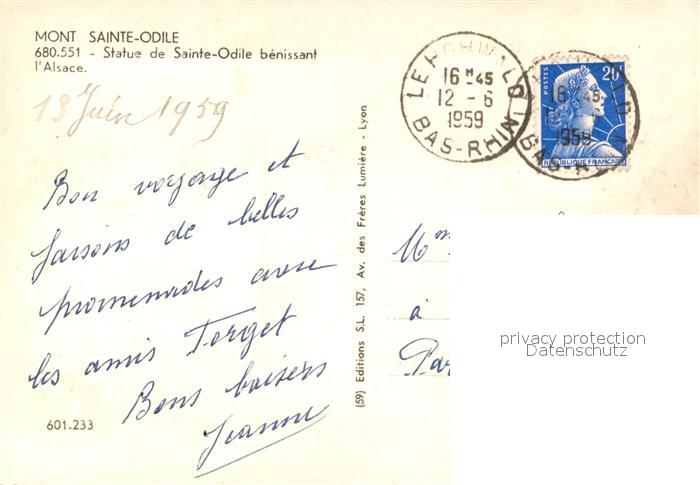 MONT SAINTE-ODILE
680.551 - Statue de Sainte-Odile bénissant
l'Alsace.
13 Juin 1959
LE HOHWALD
16 H 45
12 - 6
1959
BAS-RHIN
POSTES 20F
REPUBLIQUE FRANCAISE
16 45
1959
Bon voyage et
faisons de belles
promenades avec
les amis Forget
Bons baisers
Jeanne
601.233
(59) Editions S.L. 157, Av. des Frères Lumière - Lyon
Mme
à
Par
privacy protection
Datenschutz